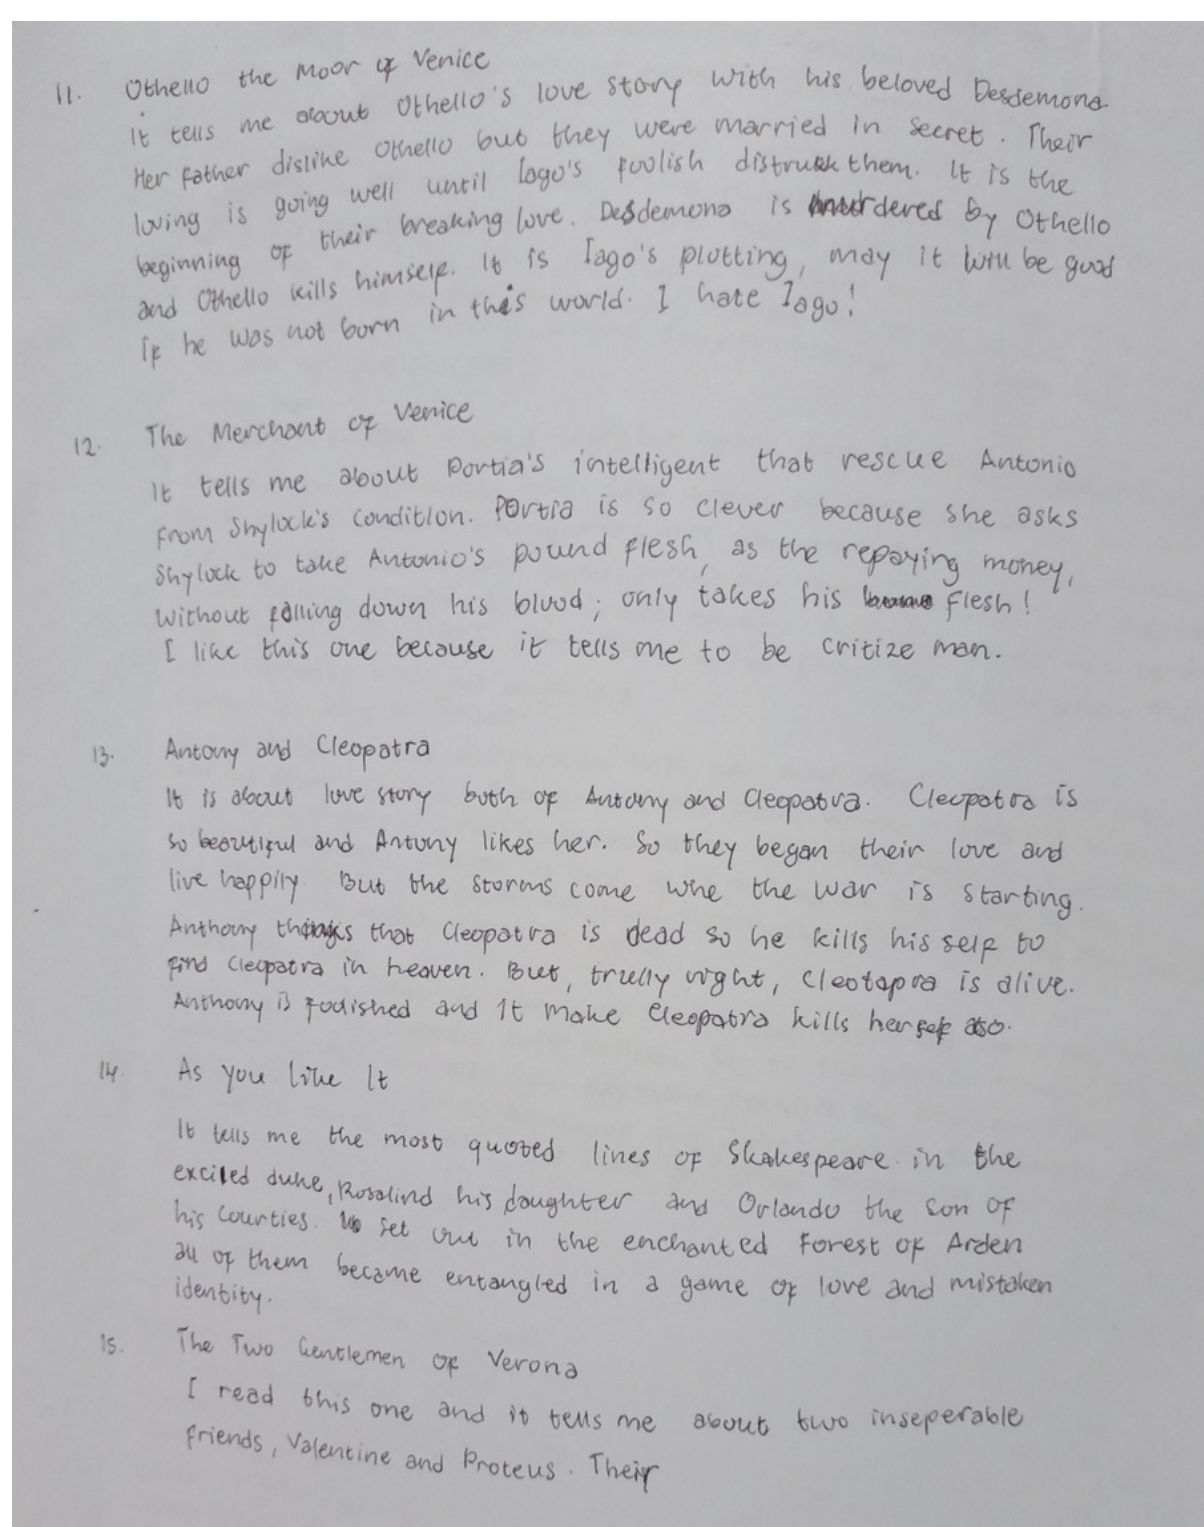 11. Othello the Moor of Venice
It tells me about Othello's love story with his beloved Desdemona
Her father dislike Othello but they were married in secret. Their
loving is going well until Iago's foolish distrust them. It is the
beginning of their breaking love. Desdemona is murdered by Othello
and Othello kills himself. It is Iago's plotting, may it will be good
If he was not born in this world. I hate Iago!
12. The Merchant of Venice
It tells me about Portia's intelligent that rescue Antonio
From Shylock's condition. Portia is so clever because she asks
Shylock to take Antonio's pound flesh, as the repaying money,
without falling down his blood; only takes his flesh!
I like this one because it tells me to be critize man.
13. Antony and Cleopatra
It is about love story both of Antony and Cleopatra. Cleopatra is
so beautiful and Antony likes her. So they began their love and
live happily. But the storms come whe the war is starting.
Anthony thinks that Cleopatra is dead so he kills his self to
find Cleopatra in heaven. But, truelly right, Cleotapra is alive.
Anthony is foolished and it make Cleopatra kills herself also.
14. As you like It
It tells me the most quoted lines of Skakespeare in the
exciled duke, Rosalind his daughter and Orlando the son of
his courties. set out in the enchanted Forest of Arden
all of them became entangled in a game of love and mistaken
identity.
15. The Two Gentlemen of Verona
I read this one and it tells me about two inseperable
friends, Valentine and Proteus. Their